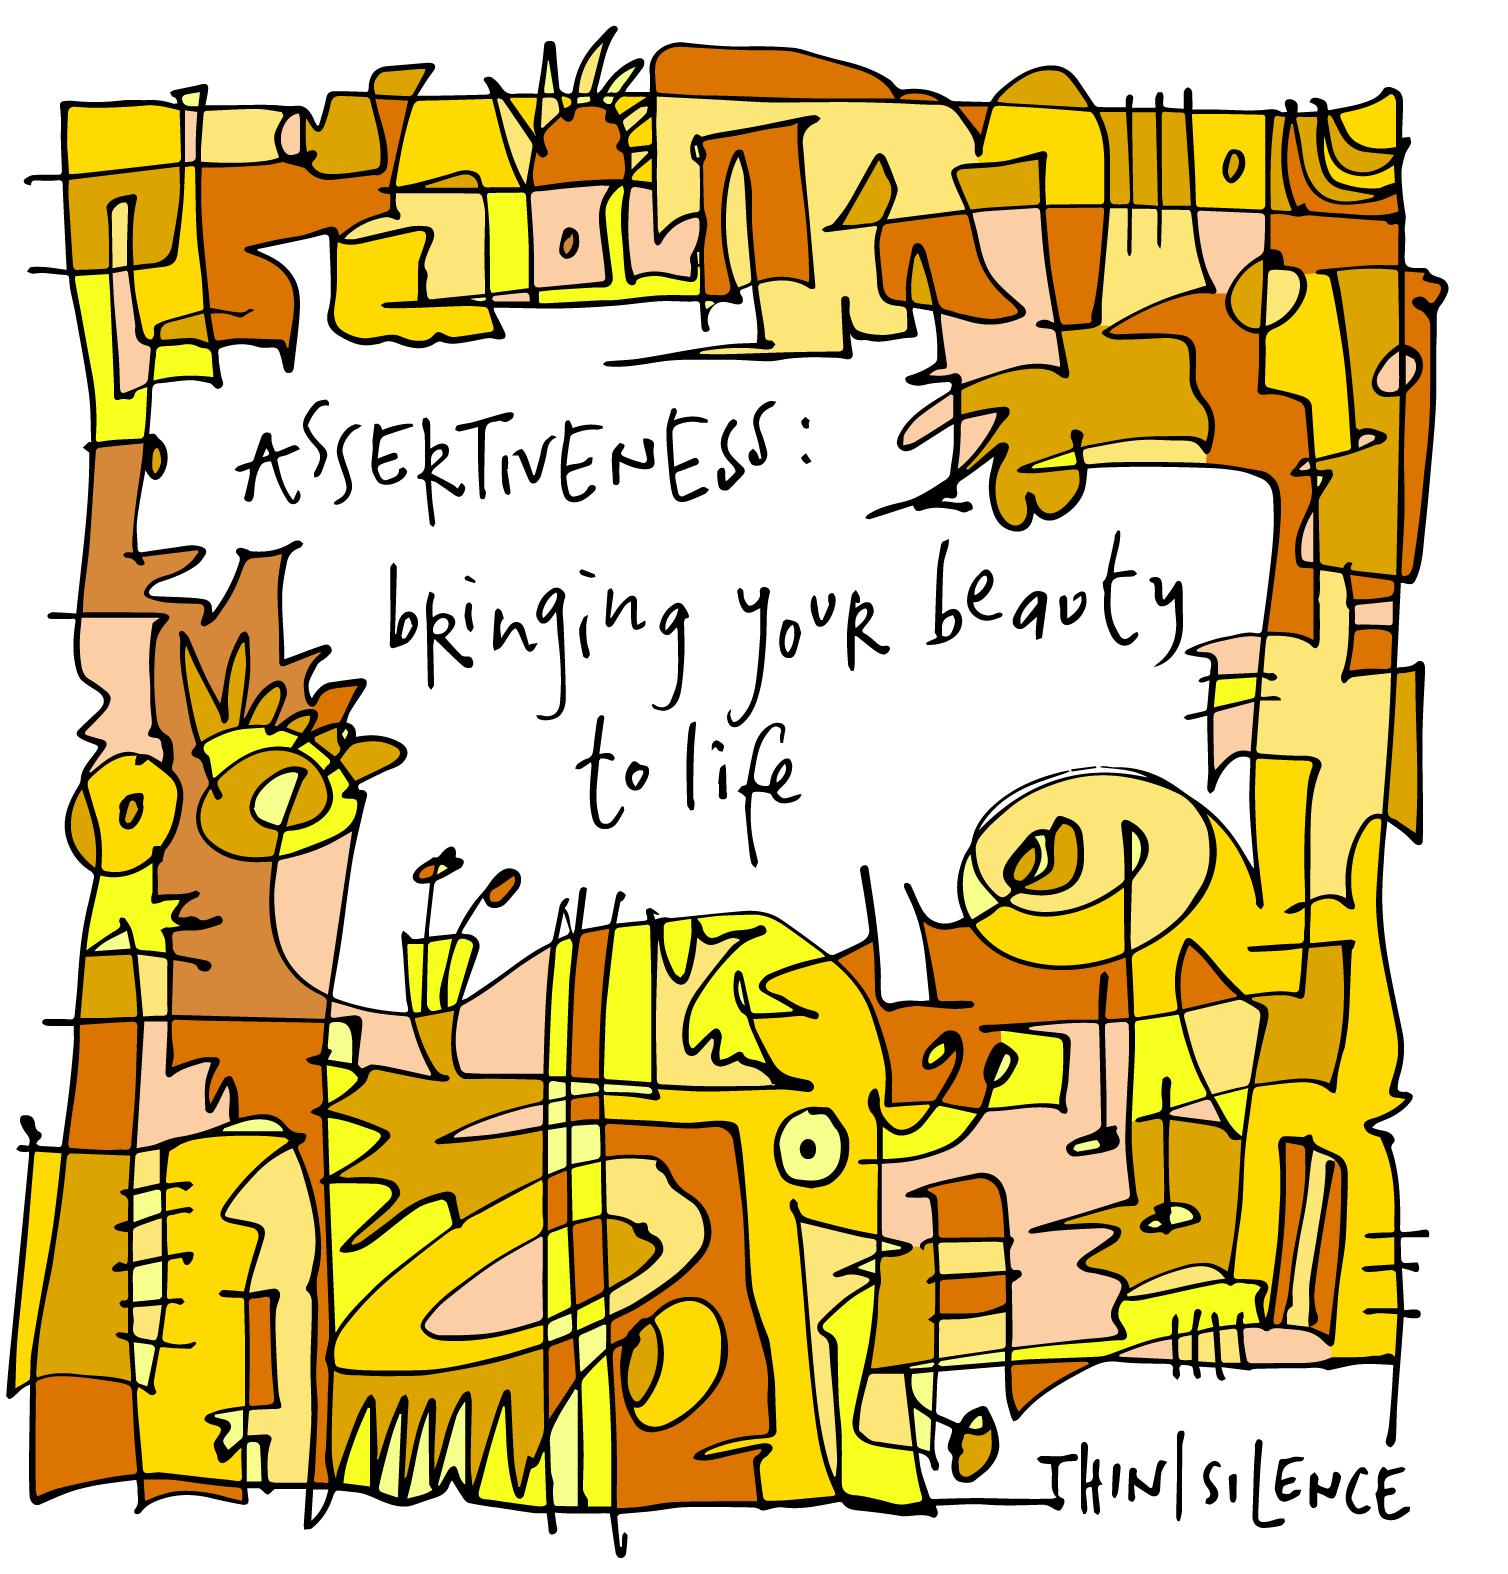 ASSERTIVENESS:
bringing your beauty
to life
THIN/SILENCE